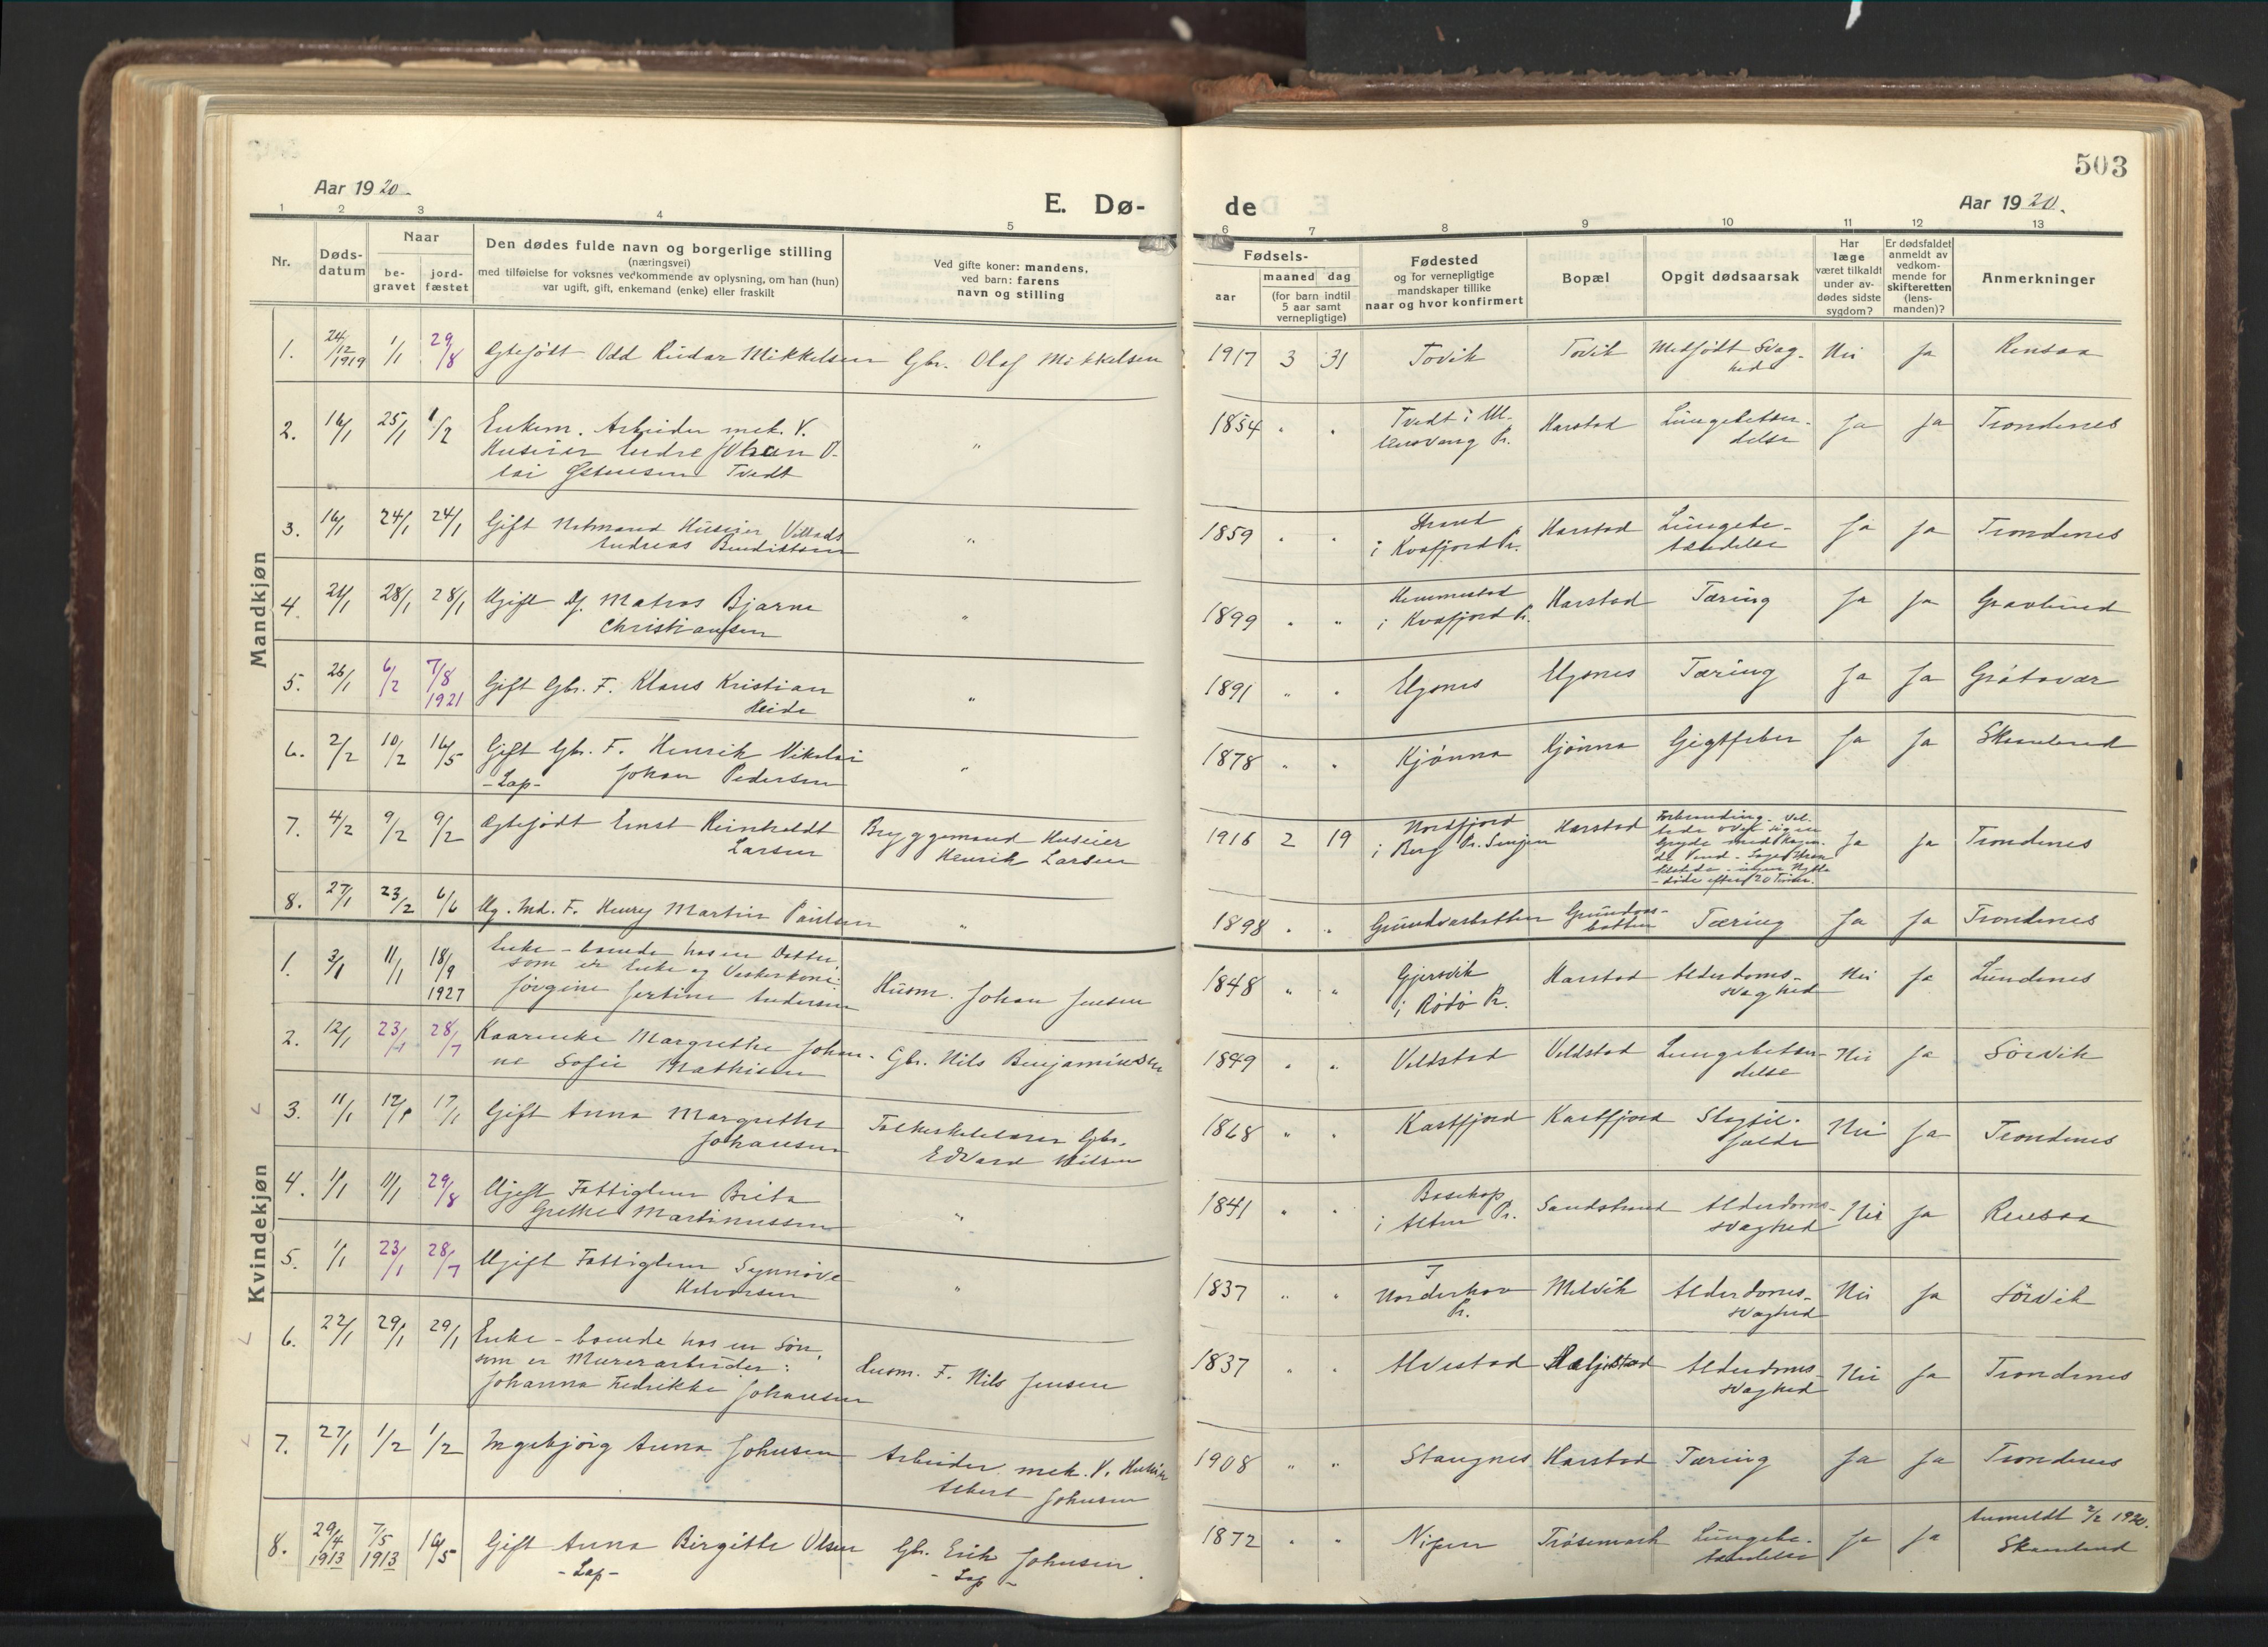 503
Aar 1920.
E. Dø-
de
Aar 1920.
1 2 3 4 5 6 7 8 9 10 11 12 13
Nr.
Døds-
datum
Naar
be-
gravet
jord-
fæstet
Den dødes fulde navn og borgerlige stilling
(næringsvei)
med tilføielse for voksnes vedkommende av oplysning, om han (hun)
var ugift, gift, enkemand (enke) eller fraskilt
Ved gifte koner: mandens,
ved barn: farens
navn og stilling
Fødsels-
aar
maaned dag
(for barn indtil
5 aar samt
vernepligtige)
Fødested
og for vernepligtige
mandskaper tillike
naar og hvor konfirmert
Bopæl
Opgit dødsaarsak
Har
læge
været tilkaldt
under av-
dødes sidste
sygdom?
Er dødsfaldet
anmeldt av
vedkom-
mende for
skifteretten
(lens-
manden)?
Anmerkninger
Mandkjøn
1. 24/12 1919 1/1 29/8 Egtefødt Odd Reidar Mikkelsen Gbr. Olaf Mikkelsen 1917 3 31 Tovik Tovik Medfødt Svag-
hed Nei Ja Rensaa
2. 16/1 25/1 1/2 Enkem. Arbeider mek. V.
Huseier Endre Johan O-
lai Østensen Tvedt " 1854 " " Tvedt i Ul-
lensvang Pr. Harstad Lungebetæn-
delse Ja Ja Trondenes
3. 16/1 24/1 24/1 Gift Notmand Huseier Villads
Andreas Benediktsen " 1859 " " Strand
i Kvæfjord Pr. Harstad Lungebe-
tændelse Ja Ja Trondenes
4. 21/1 28/1 28/1 Ugift Df. Matros Bjarne
Christiansen " 1899 " " Hemmestad
i Kvæfjord Pr. Harstad Tæring Ja Ja Gravlund
5. 26/1 6/2 7/8 1921 Gift Gbr. F. Klaus Kristian
Heide " 1891 " " Elgsnes Elgsnes Tæring Ja Ja Grøtavær
6. 2/2 10/2 16/5 Gift Gbr. F. Henrik Nikolai
-Lap- Johan Pedersen " 1878 " " Kjønna Kjønna Gigtfeber Ja Ja Skaulund
7. 4/2 9/2 9/2 Egtefødt Ernst Reinholdt
Larsen Bryggemand Huseier
Henrik Larsen 1916 2 19 Nordfjord
i Berg Pr. Senjen Harstad Forbrænding. Vel-
tede over sig en
Gryde med kogen-
de Vand.
- døde efter 20 Timer. Ja Ja Trondenes
8. 27/1 23/2 6/6 Ug. Md. F. Henry Martin Paulsen " 1898 " " Grundvasbotten Grundvas-
botten Tæring Ja Ja Trondenes
Kvindekjøn
1. 3/1 11/1 18/9 1927 Enke - boende hos en Datter,
som er Enke og Vaskerkone:
Jørgine Jertine Andersen Husm. Johan Jensen 1848 " " Gjersvik
i Rødø Pr. Harstad Alderdoms-
svaghed Nei Ja Lundenes
2. 12/1 23/1 28/7 Kaarenke Margrethe Johan-
ne Sofie Mathisen Gbr. Nils Benjaminsen 1849 " " Veldstad Veldstad Lungebetæn-
delse Nei Ja Sørvik
3. 11/1 17/1 17/1 Gift Anna Margrethe
Johansen Folkeskolelærer Gbr.
Edvard Nilsen 1868 " " Kastfjord Kastfjord Slagtil-
fælde Nei Ja Trondenes
4. 1/1 11/1 29/8 Ugift Fattiglem Brita
Grethe Martinussen " 1841 " " Bosekop
i Alten Pr. Sandstrand Alderdoms-
svaghed Nei Ja Rensaa
5. 1/1 23/1 28/7 Ugift Fattiglem Synnøve
Halvorsen " 1837 " " I
Norderhov
Pr. Melvik Alderdoms-
svaghed Nei Ja Sørvik
6. 22/1 29/1 29/1 Enke - boende hos en Søn,
som er Murerarbeider:
Johanna Fredrikke Johansen Husm. F. Nils Jensen 1837 " " Alvestad Alderdoms-
svaghed Nei Ja Trondenes
7. 27/1 1/2 1/2 Ingebjørg Anna Johnsen Arbeider mek. V. Huseier
Albert Johnsen 1908 " " Stangnes Harstad Tæring Ja Ja Trondenes
8. 29/4 1913 7/5 1913 16/5 Gift Anna Birgitte Olsen
-Lap- Gbr. Erik Johnsen.
-Lap- 1872 " " Nipen Trøsemark Lungebe-
tændelse Ja Ja Anmeldt 2/2 1920.
Skaulund